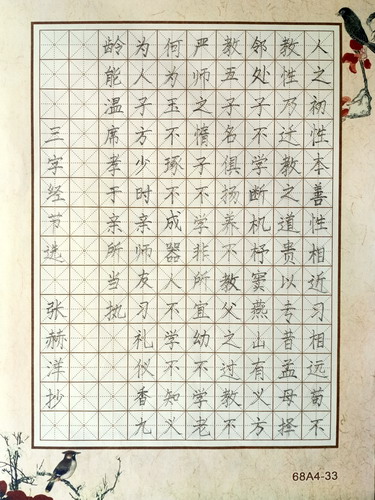 人之初性本善性相近习相远苟不
教性乃迁教之道贵以专昔孟母择
邻处子不学断机杼窦燕山有义方
教五子名俱扬养不教父之过教不
严师之惰子不学非所宜幼不学老
何为玉不琢不成器人不学不知义
为人子方少时亲师友习礼仪香九
龄能温席孝于亲所当执
三字经节选 张赫洋抄
68A4-33